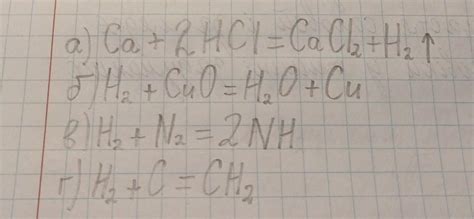 а) Ca + 2HCl = CaCl₂ + H₂↑
б) H₂ + CuO = H₂O + Cu
в) H₂ + N₂ = 2NH
г) H₂ + C = CH₂